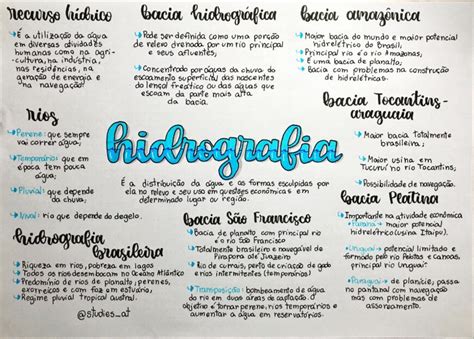 recurso hídrico
É a utilização da água
em diversas atividades
humanas como na agri-
cultura, na indústria,
nas residências, na
geração de energia e
na navegação
rios
Perene: que sempre
vai correr água;
Temporário: que em
época tem pouca
água;
Pluvial: que depende
da chuva;
Nival: rio que depende do degelo.
hidrografia
brasileira
Riqueza em rios, pobreza em lagos
Todos os rios desembocam no Oceano Atlântico
Predomínio de rios de planalto, perenes,
exorreicos e com foz em estuário;
Regime pluvial tropical austral.
@studies_at
bacia hidrográfica
Pode ser definida como uma porção
de relevo drenada por um rio principal
e seus afluentes;
Concentrado por águas da chuva do
escoamento superficial, das nascentes
do lençol freático ou das águas que
escoam da parte mais alta
da bacia.
hidrografia
É a distribuição da água e as formas esculpidas por
ela no relevo e seu uso em questões econômicas em
determinado lugar ou região.
bacia São Francisco
Bacia de planalto com principal rio
é o rio São Francisco
Totalmente brasileiro e navegável de
Pirapora até Juazeiro
Rio de currais, pela criação de gado
e rios intermitentes (temporário)
Transposição: bombeamento de água
do rio em duas áreas de captação. O
objetivo é tornar perene, rios temporários e
aumentar a água em reservatórios.
bacia amazônica
Maior bacia do mundo e maior potencial
hidrelétrico do Brasil;
Principal rio é o rio Amazonas;
É uma bacia de planalto;
Bacia com problemas na construção
de hidrelétricas.
bacia Tocantins-
araguaia
Maior bacia totalmente
brasileira;
Maior usina em
Tucuruí no rio Tocantins;
Possibilidade de navegação.
bacia Platina
Importante na atividade econômica
Paraná: maior potencial
hidrelétrico (usina Itaipu).
Uruguai: potencial limitado e
formado pelo rio Pelotas e Canoas,
principal rio Uruguai.
Paraguai: de planície, passa
no pantanal navegável mas
com problemas de
assoreamento.